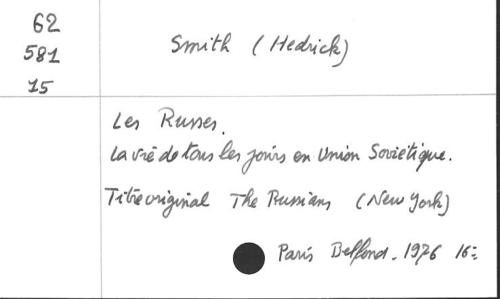 62
581
15
Smith (Hedrick)
Les Russes.
La vie de tous les jours en Union Soviétique.
Titre original The Russians (New York)
Paris Belfond. 1976 16=